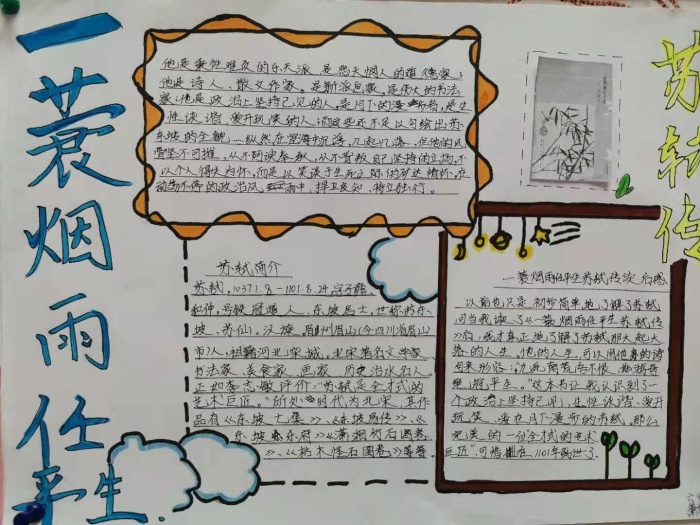 一蓑烟雨任平生
苏轼传
他是秉性难改的乐天派，是悲天悯人的道德家；
他是诗人、散文作家。是新派画家，是伟大的书法
家；他是政治上坚持己见的人，是月下的漫步者，是生
性诙谐爱开玩笑的人；而这些还不足以勾绘出苏
东坡的全貌……纵然在宦海中沉浮，几起几落，但他的风
骨坚不可摧，从不阿谀奉承，从不背叛自己坚持的立场，不
以个人得失为怀，而是以笑谈于生死之际的旷达情怀，在
动荡不停的政治风雨中，捍卫良知、特立独行。
苏轼简介
苏轼，1037.1.8-1101.8.24，字子瞻、
和仲，号铁冠道人、东坡居士，世称苏东
坡、苏仙，汉族。眉州眉山（今四川省眉山
市）人，祖籍河北栾城，北宋著名文学家、
书法家、美食家、画家，历史治水名人。
正如李志敏评价：“苏轼是全才式的
艺术巨匠。”所处时代为北宋，其作
品有《东坡七集》、《东坡易传》、《
东坡乐府》《潇湘竹石图卷
》、《枯木怪石图卷》等等。
一蓑烟雨任平生苏轼传读后感
以前也只是初步简单地了解了苏轼，
可当我读了《一蓑烟雨任平生苏轼传
》后，我才真正地了解了苏轼那大起大
落的人生。他的人生，可以用他喜的诗
句来形容：
理。”这本书让我认识到了一
个政治上坚持己见，生性诙谐、爱开
玩笑，爱在月下漫步的苏轼，那么
完美的一位“全才式的艺术
巨匠”可惜在1101年逝世了。